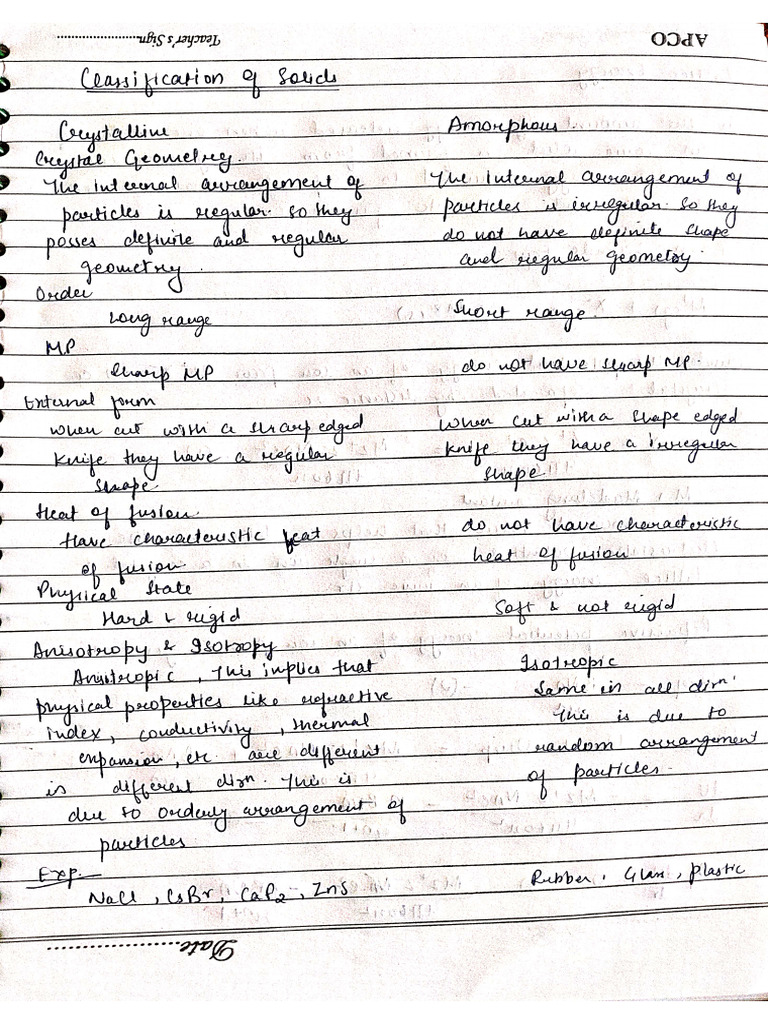 APCO
Teacher's Sign..........................
Classification of Solids
Crystalline Amorphous.
Crystal Geometry.
The internal arrangement of The internal arrangement of
particles is regular. so they particles is irregular. So they
posses definite and regular do not have definite shape
geometry. and regular geometry.
Order
Long range Short range.
MP
Sharp MP do not have sharp MP.
External form
when cut with a sharp edged When cut with a shape edged
knife they have a regular knife they have a irregular
shape shape.
Heat of fusion.
Have characteristic heat do not have characteristic
of fusion heat of fusion
Physical State
Hard & rigid Soft & not rigid
Anisotropy & Isotropy
Anistropic, This implies that Isotropic
physical properties like refractive Same in all dirⁿ.
index, conductivity, thermal This is due to
expansion, etc. are different random arrangement
is different dirⁿ. This is of particles.
due so orderly arrangement of
particles.
Exp.
NaCl, CsBr, CaF₂, ZnS Rubber, Glass, plastic
Date......................